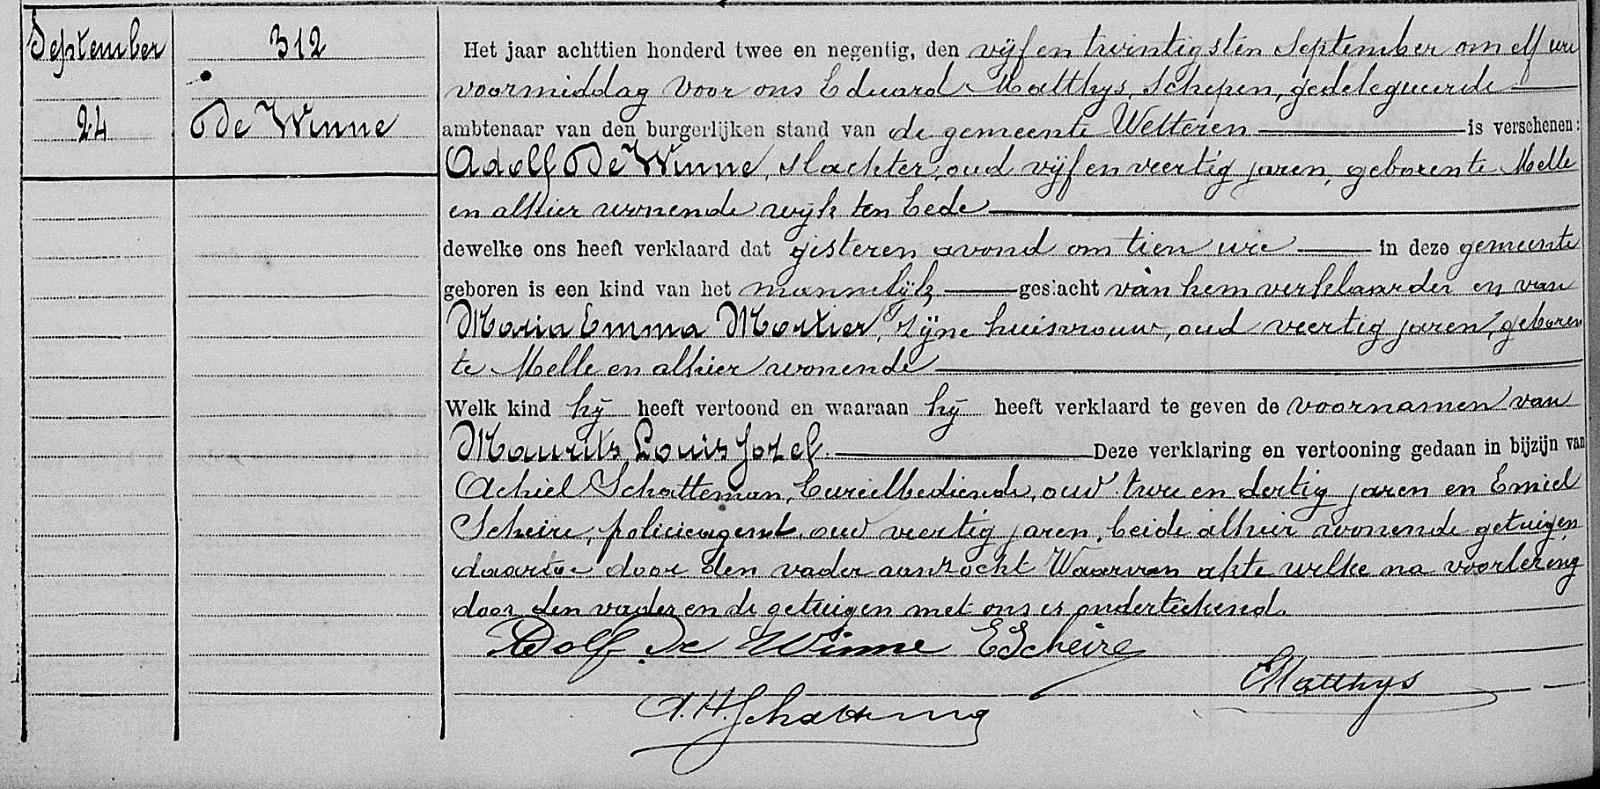 September
312
24
De Winne
Het jaar achttien honderd twee en negentig, den vijf en twintigsten September om elf ure
voormiddag voor ons Eduard Matthys, Schepen, gedelegueerde
ambtenaar van den burgerlijken stand van de gemeente Wetteren is verschenen:
Adolf De Winne, slachter, oud vijf en veertig jaren, geboren te Melle
en alhier wonende wijk ten Eede
dewelke ons heeft verklaard dat gisteren avond om tien ure in deze gemeente
geboren is een kind van het mannelijk geslacht van hem verklaarder en van
Maria Emma Mortier, zijne huisvrouw, oud veertig jaren, geboren
te Melle en alhier wonende
Welk kind hij heeft vertoond en waaraan hij heeft verklaard te geven de voornamen van
Maurits Louis Jozef. Deze verklaring en vertooning gedaan in bijzijn van
Achiel Schatteman, bureelbediende, oud twee en dertig jaren en Emiel
Scheire, policieagent, oud veertig jaren, beide alhier wonende getuigen
daartoe door den vader aanzocht Waarvan akte welke na voorlezing
door den vader en de getuigen met ons is onderteekend.
Adolf De Winne EScheire
EMatthys
A.H.Schatteman